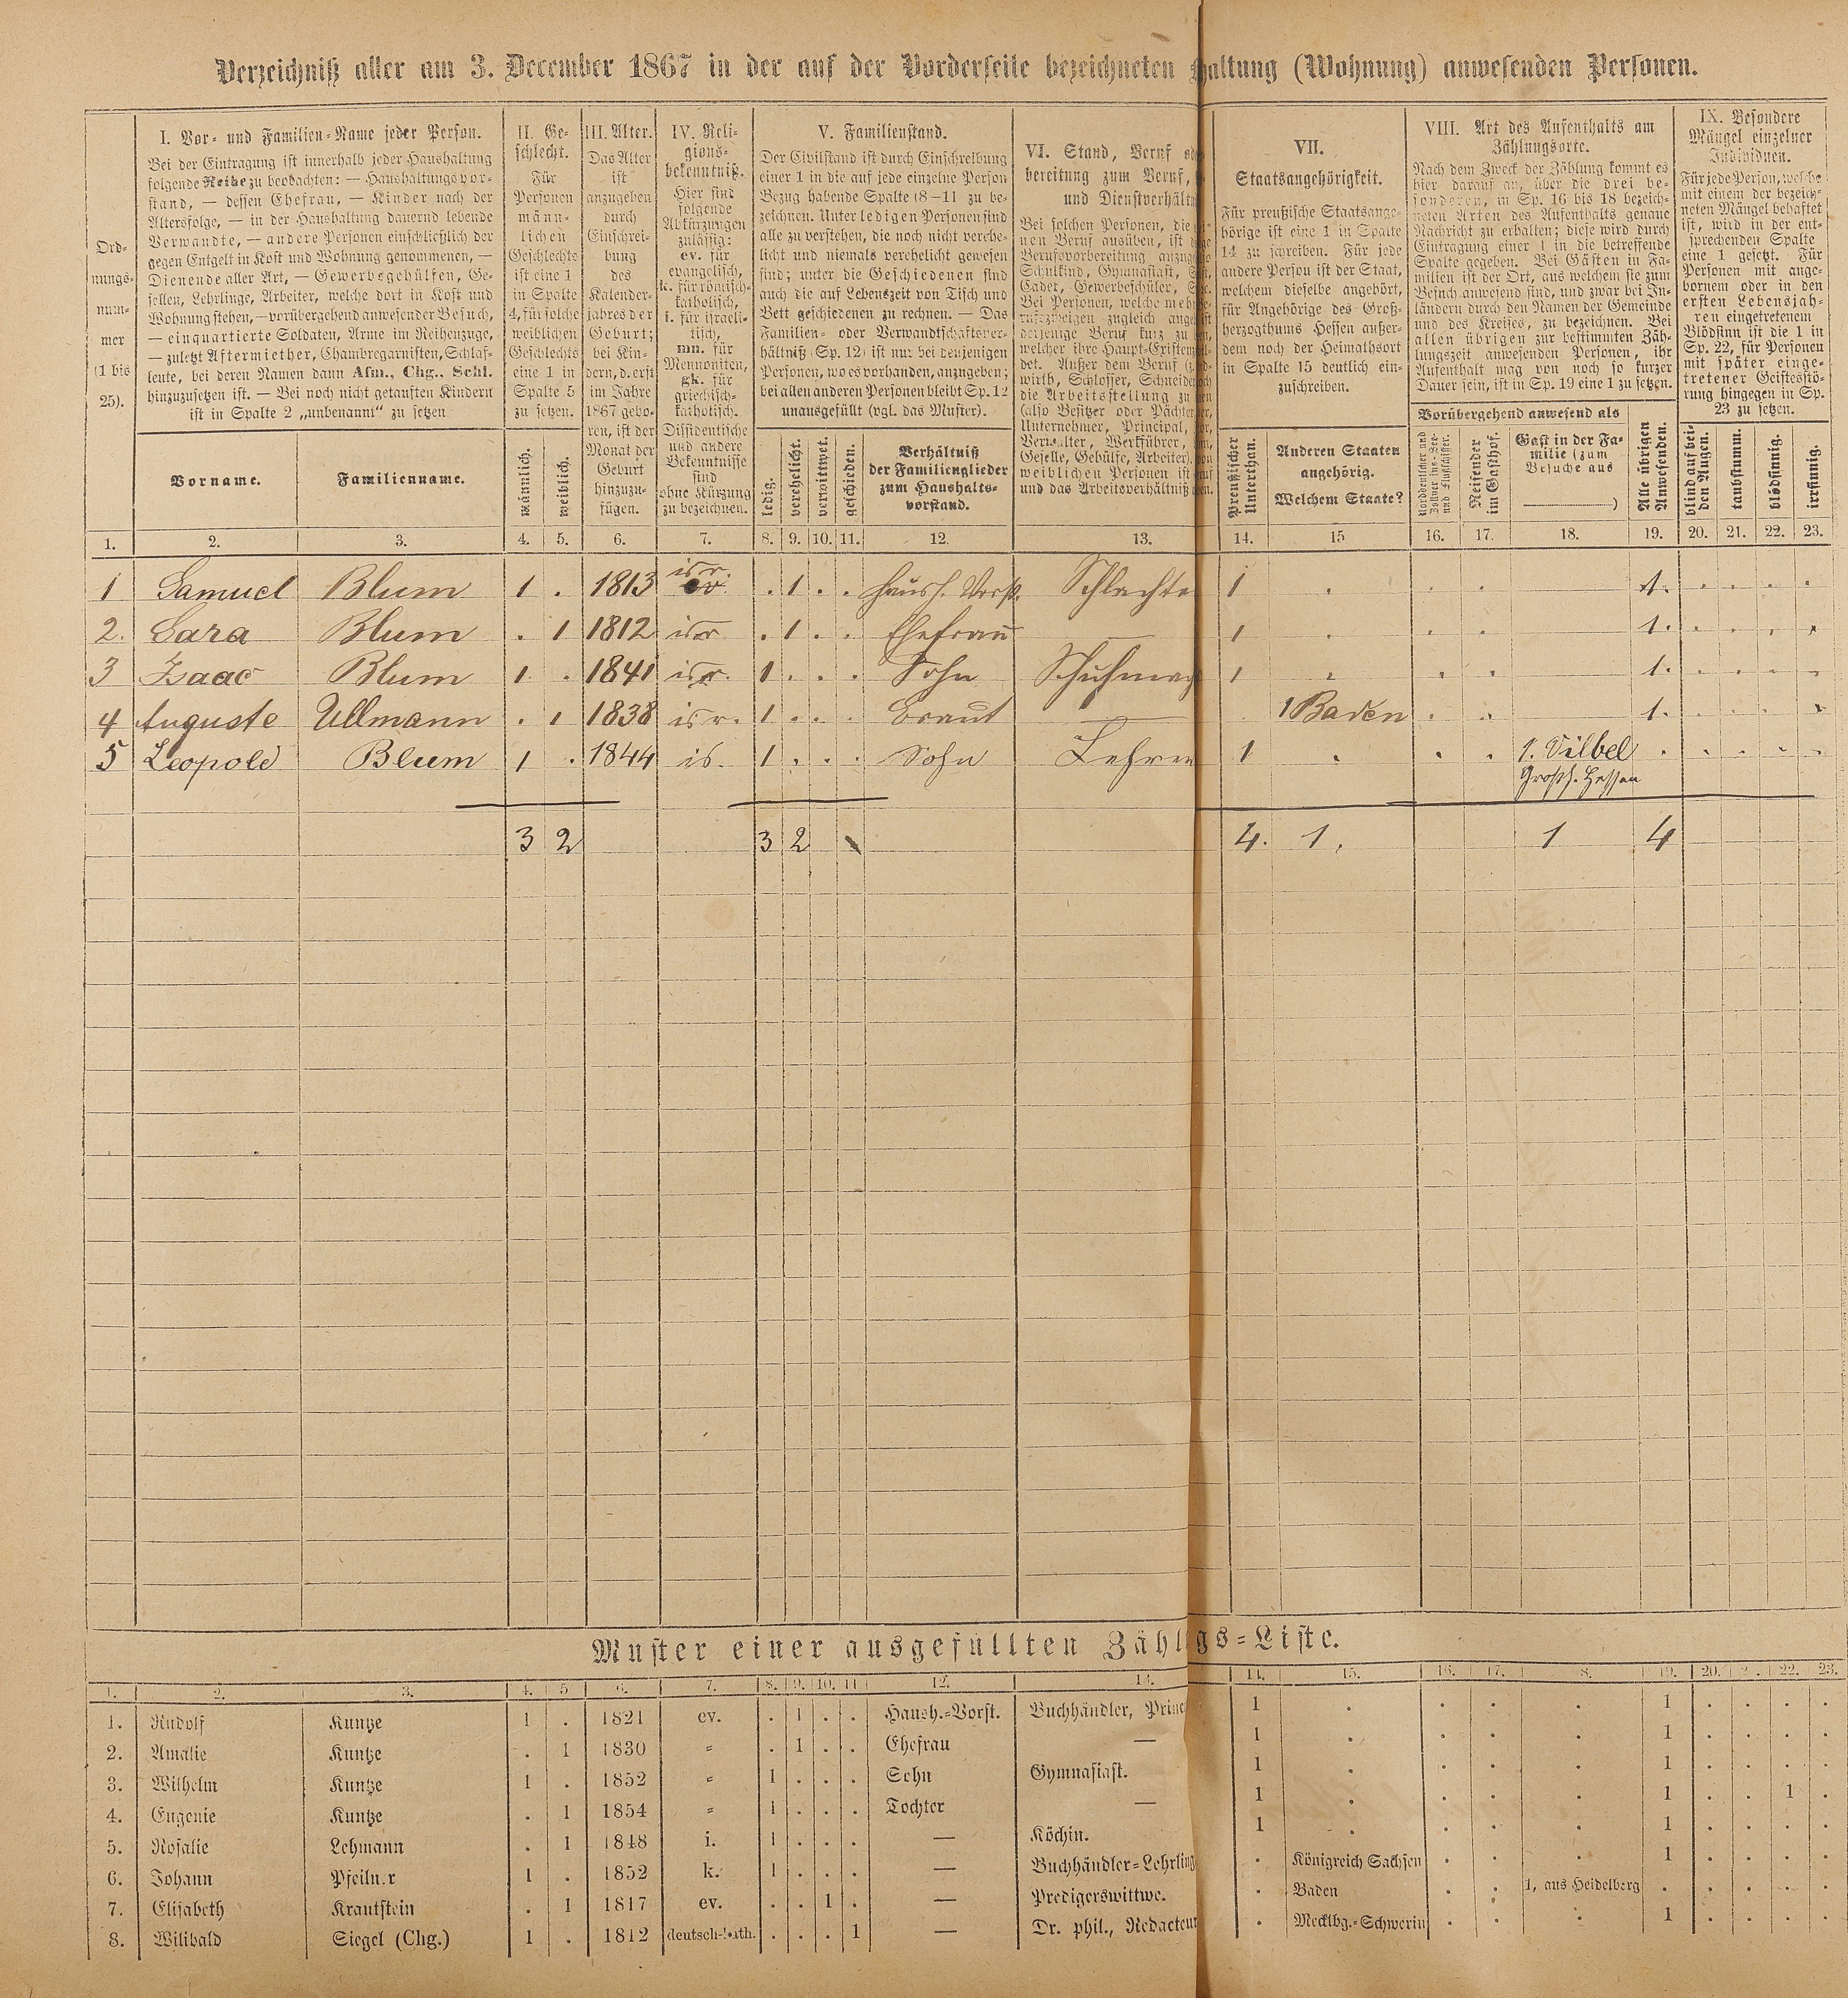 Verzeichniß aller am 3. December 1867 in der auf der Vorderseite bezeichneten haltung (Wohnung) anwesenden Personen.
Ord-
nungs-
num-
mer
(1 bis
25).
I. Vor- und Familien-Name jeder Person.
Bei der Eintragung ist innerhalb jeder Haushaltung
folgende Reihe zu beobachten: — Haushaltungsvor-
stand, — dessen Ehefrau, — Kinder nach der
Altersfolge, — in der Haushaltung dauernd lebende
Verwandte, — andere Personen einschließlich der
gegen Entgelt in Kost und Wohnung genommenen, —
Dienende aller Art, — Gewerbsgehülfen, Ge-
sellen, Lehrlinge, Arbeiter, welche dort in Kost und
Wohnung stehen, — vorübergehend anwesender Besuch,
— einquartierte Soldaten, Arme im Reihenzuge,
— zuletzt Aftermiether, Chambregarnisten, Schlaf-
leute, bei deren Namen dann Afm., Chg., Schl.
hinzuzusetzen ist. — Bei noch nicht getauften Kindern
ist in Spalte 2 „unbenannt“ zu setzen
Vorname.
Familienname.
II. Ge-
schlecht.
Für
Personen
männ-
lichen
Geschlechts
ist eine 1
in Spalte
4, für solche
weiblichen
Geschlechts
eine 1 in
Spalte 5
zu setzen.
männlich.
weiblich.
III. Alter.
Das Alter
ist
anzugeben
durch
Einschrei-
bung
des
Kalender-
jahres der
Geburt;
bei Kin-
dern, d. erst
im Jahre
1867 gebo-
ren, ist der
Monat der
Geburt
hinzuzu-
fügen.
IV. Reli-
gions-
bekenntniß.
Hier sind
folgende
Abkürzungen
zulässig:
ev. für
evangelisch,
k. für römisch-
katholisch,
i. für israeli-
tisch,
mn. für
Mennoniten,
gk. für
griechisch-
katholisch.
Dissidentische
und andere
Bekenntnisse
sind
ohne Kürzung
zu bezeichnen.
V. Familienstand.
Der Civilstand ist durch Einschreibung
einer 1 in die auf jede einzelne Person
Bezug habende Spalte (8—11) zu be-
zeichnen. Unter ledigen Personen sind
alle zu verstehen, die noch nicht verehe-
licht und niemals verehelicht gewesen
sind; unter die Geschiedenen sind
auch die auf Lebenszeit von Tisch und
Bett geschiedenen zu rechnen. — Das
Familien- oder Verwandtschaftsver-
hältniß (Sp. 12) ist nur bei denjenigen
Personen, wo es vorhanden, anzugeben;
bei allen anderen Personen bleibt Sp. 12
unausgefüllt (vgl. das Muster).
ledig.
verehelicht.
verwittwet.
geschieden.
Verhältniß
der Familienglieder
zum Haushalts-
vorstand.
VI. Stand, Beruf
bereitung zum Beruf,
und Dienstverhält
Bei solchen Personen, die
nen Beruf ausüben, ist
Berufsvorbereitung
Schulkind, Gymnasiast,
Cadet, Gewerbeschüler,
Bei Personen, welche
rufszweigen zugleich
derjenige Beruf kurz zu
welcher ihre Haupt-Existenz
det. Außer dem Beruf
wirth, Schlosser, Schneider
die Arbeitsstellung zu
(also Besitzer oder Pächter
Unternehmer, Principal,
Verwalter, Werkführer,
Geselle, Gehülfe, Arbeiter).
weiblichen Personen ist
und das Arbeitsverhältniß
VII.
Staatsangehörigkeit.
Für preußische Staatsange-
hörige ist eine 1 in Spalte
14 zu schreiben. Für jede
andere Person ist der Staat,
welchem dieselbe angehört,
für Angehörige des Groß-
herzogthums Hessen außer-
dem noch der Heimathsort
in Spalte 15 deutlich ein-
zuschreiben.
Preußischer
Unterthan.
Anderen Staaten
angehörig.
Welchem Staate?
VIII. Art des Aufenthalts am
Zählungsorte.
Nach dem Zweck der Zählung kommt es
hier darauf an, über die drei be-
sonderen, in Sp. 16 bis 18 bezeich-
neten Arten des Aufenthalts genaue
Nachricht zu erhalten; diese wird durch
Eintragung einer 1 in die betreffende
Spalte gegeben. Bei Gästen in Fa-
milien ist der Ort, aus welchem sie zum
Besuch anwesend sind, und zwar bei In-
ländern durch den Namen der Gemeinde
und des Kreises, zu bezeichnen. Bei
allen übrigen zur bestimmten Zäh-
lungszeit anwesenden Personen, ihr
Aufenthalt mag von noch so kurzer
Dauer sein, ist in Sp. 19 eine 1 zu setzen.
Vorübergehend anwesend als
Norddeutscher und
Zollver ins-See-
und Flußschiffer.
Reisender
im Gasthof.
Gast in der Fa-
milie (zum
Besuche aus
)
Alle übrigen
Anwesenden.
IX. Besondere
Mängel einzelner
Individuen.
Für jede Person, welche
mit einem der bezeich-
neten Mängel behaftet
ist, wird in der ent-
sprechenden Spalte
eine 1 gesetzt. Für
Personen mit ange-
bornem oder in den
ersten Lebensjah-
ren eingetretenem
Blödsinn ist die 1 in
Sp. 22, für Personen
mit später einge-
tretener Geistesstö-
rung hingegen in Sp.
23 zu setzen.
blind auf bei-
den Augen.
taubstumm.
blödsinnig.
irrsinnig.
1. 2. 3. 4. 5. 6. 7. 8. 9. 10. 11. 12. 13. 14. 15 16. 17. 18. 19. 20. 21. 22. 23.
1 Samuel Blum 1 . 1813 isr. . 1 . . Haush. Vorst. Schlachte 1 . . . 1. . . . .
2. Sara Blum . 1 1812 isr . 1 . . Ehefrau — 1 . . . 1. . . . .
3 Isaac Blum 1 . 1841 isr. 1 . . . Sohn Schuhmac 1 . . . 1. . . . .
4 Auguste Ullmann . 1 1838 isr. 1 . . . Braut — . 1 Baden . . 1. . . . .
5 Leopold Blum 1 . 1844 is. 1 . . . Sohn Lehrer 1 . . . 1. Vilbel . . . . .
Großh. Hessen
3 2 3 2 4. 1. 1 4
Muster einer ausgefüllten Zähl gs=Liste.
1. 2. 3. 4. 5 6. 7. 8. 9. 10. 11 12. 13. 14. 15. 16. 17. 8. 19. 20. 2 . 22. 23.
1. Rudolf Kuntze 1 . 1821 ev. . 1 . . Haush.=Vorst. Buchhändler, Princ 1 . . . . 1 . . . .
2. Amalie Kuntze . 1 1830 „ . 1 . . Ehefrau — 1 . . . . 1 . . . .
3. Wilhelm Kuntze 1 . 1852 „ 1 . . . Sohn Gymnasiast. 1 . . . . 1 . . . .
4. Eugenie Kuntze . 1 1854 „ 1 . . . Tochter — 1 . . . . 1 . . 1 .
5. Rosalie Lehmann . 1 1848 i. 1 . . . — Köchin. 1 . . . . 1 . . . .
6. Johann Pfeiln.r 1 . 1852 k. 1 . . . — Buchhändler=Lehrling . Königreich Sachsen . . . 1 . . . .
7. Elisabeth Krautstein . 1 1817 ev. . . 1 . — Predigerswittwe. . Baden . . 1, aus Heidelberg . . . . .
8. Wilibald Siegel (Chg.) 1 . 1812 deutsch-kath. . . . 1 — Dr. phil., Redacteur . Mecklbg.=Schwerin . . . 1 . . . .